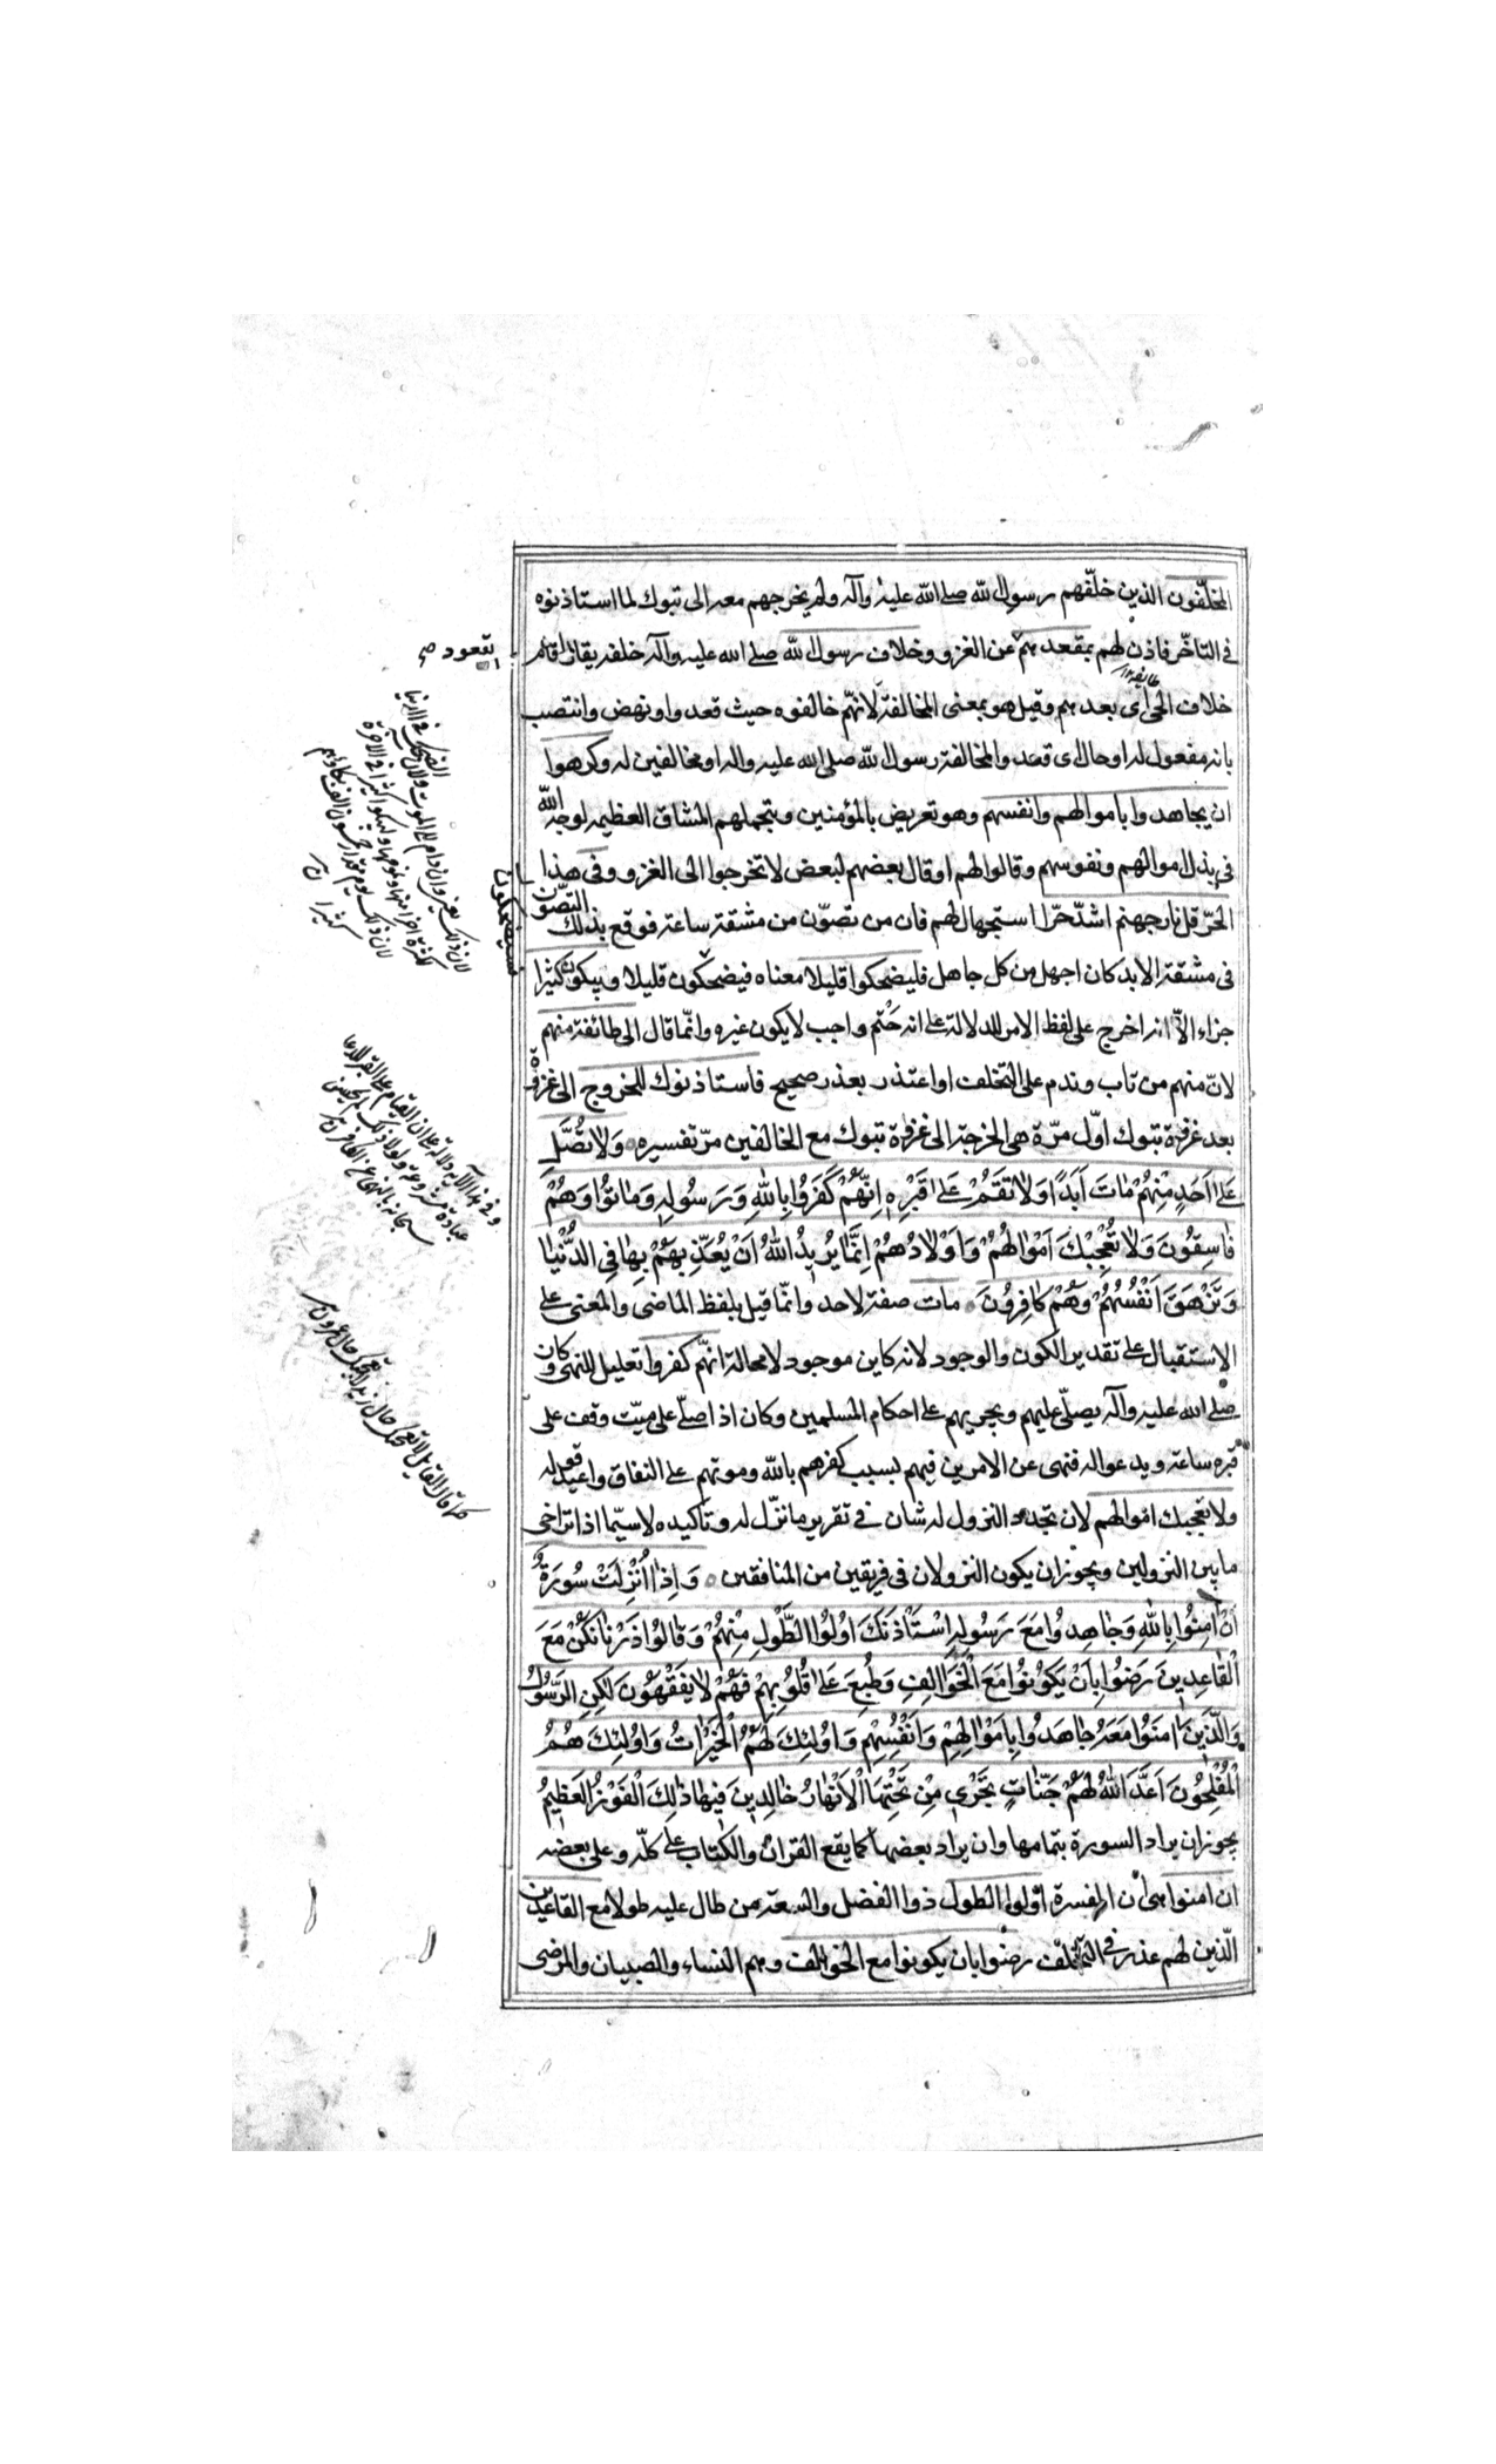 المخلّفون الذين خلّفهم رسول الله صلى الله عليه وآله ولم يخرجهم معه الى تبوك لما استاذنوه
فى التاخّر فاذن لهم بمقعدهم عن الغزو وخلاف رسول الله صلى الله عليه وآله خلفه يقال اقام
خلاف الحى اى بعدهم وقيل هو بمعنى المخالفة لانهّم خالفوه حيث قعدوا ونهض وانتصب
بانه مفعول له او حال اى قعدوا لمخالفة رسول الله صلى الله عليه واله او مخالفين له وكرهوا
ان يجاهدوا باموالهم وانفسهم وهو تعريض بالمؤمنين وبتحملهم المشاق العظيمه لوجه الله
فى بذل اموالهم ونفوسهم وقالوا لهم او قال بعضهم لبعض لا تخرجوا الى الغزو وفى هذا
الحرّ قل نار جهنم اشدّ حرّا استجهال لهم فان من تصوّن من مشقة ساعة فوقع بذلك التصوّن
فى مشقة الابد كان اجهل من كل جاهل فليضحكوا قليلا معناه فيضحكون قليلا ويبكون كثيرا
جزاء الاّ انه اخرج على لفظ الامر للدلالة على انه حَتْم واجب لا يكون غيره وانّما قال الى طائفة منهم
لانّ منهم من تاب وندم على التخلف او اعتذر بعذر صحيح فاستاذنوك للخروج الى غزوة
بعد غزوة تبوك اوّل مرّة هى الخرجة الى غزوة تبوك مع الخالفين مرّ تفسيره وَلا تُصَلِّ
عَلى اَحَدٍ مِنْهُمْ مٰاتَ اَبَدًا وَلا تَقُمْ عَلى قَبْرِهِ اِنَّهُمْ كَفَرُوا بِاللهِ وَرَسُولِهِ وَمٰاتُوا وَهُمْ
فٰاسِقُونَ وَلا تُعْجِبْكَ اَمْوٰالُهُمْ وَاَوْلادُهُمْ اِنَّمٰا يُرِيدُ اللهُ اَنْ يُعَذِّبَهُمْ بِهٰا فِى الدُّنْيٰا
وَتَزْهَقَ اَنْفُسُهُمْ وَهُمْ كٰافِرُونَ مات صفة لاحد وانّما قيل بلفظ الماضى والمعنى على
الاستقبال على تقدير الكون والوجود لانه كاين موجود لا محالة انهّم كفروا تعليل للنهى وكان
صلى الله عليه وآله يصلّى عليهم ويجريهم على احكام المسلمين وكان اذا صلّى على ميّت وقف على
قبره ساعة ويدعو اله فنهى عن الامرين فيهم بسبب كفرهم بالله وموتهم على النفاق واعيد قوله
ولا تعجبك اموالهم لان تجدد النزول له شان فى تقرير ما نزّل له وتاكيده لا سيّما اذا تراخى
ما بين النزولين ويجوز ان يكون النزولان فى فريقين من المنافقين وَاِذٰا اُنْزِلَتْ سُورَةٌ
اَنْ اٰمِنُوا بِاللهِ وَجٰاهِدُوا مَعَ رَسُولِهِ اسْتَأْذَنَكَ اُولُوا الطَّوْلِ مِنْهُمْ وَقٰالُوا ذَرْنٰا نَكُنْ مَعَ
الْقٰاعِدِينَ رَضُوا بِاَنْ يَكُونُوا مَعَ الْخَوٰالِفِ وَطُبِعَ عَلى قُلُوبِهِمْ فَهُمْ لا يَفْقَهُونَ لٰكِنِ الرَّسُولُ
وَالَّذِينَ اٰمَنُوا مَعَهُ جٰاهَدُوا بِاَمْوٰالِهِمْ وَاَنْفُسِهِمْ وَاُولٰئِكَ لَهُمُ الْخَيْرٰاتُ وَاُولٰئِكَ هُمُ
الْمُفْلِحُونَ اَعَدَّ اللهُ لَهُمْ جَنّٰاتٍ تَجْرِى مِنْ تَحْتِهَا الْاَنْهٰارُ خٰالِدِينَ فِيهٰا ذٰلِكَ الْفَوْزُ الْعَظِيمُ
يجوز ان يراد السورة بتمامها وان يراد بعضها كما يقع القران والكتاب على كلّه وعلى بعضه
ان امنوا هى ان المفسرة اولوا الطول ذوا الفضل والسعة من طال عليه طولا مع القاعدين
الّذين لهم عذر فى التخلّف رضوا بان يكونوا مع الخوالف وهم النساء والصبيان والمرضى
القعود
فسيضحكون